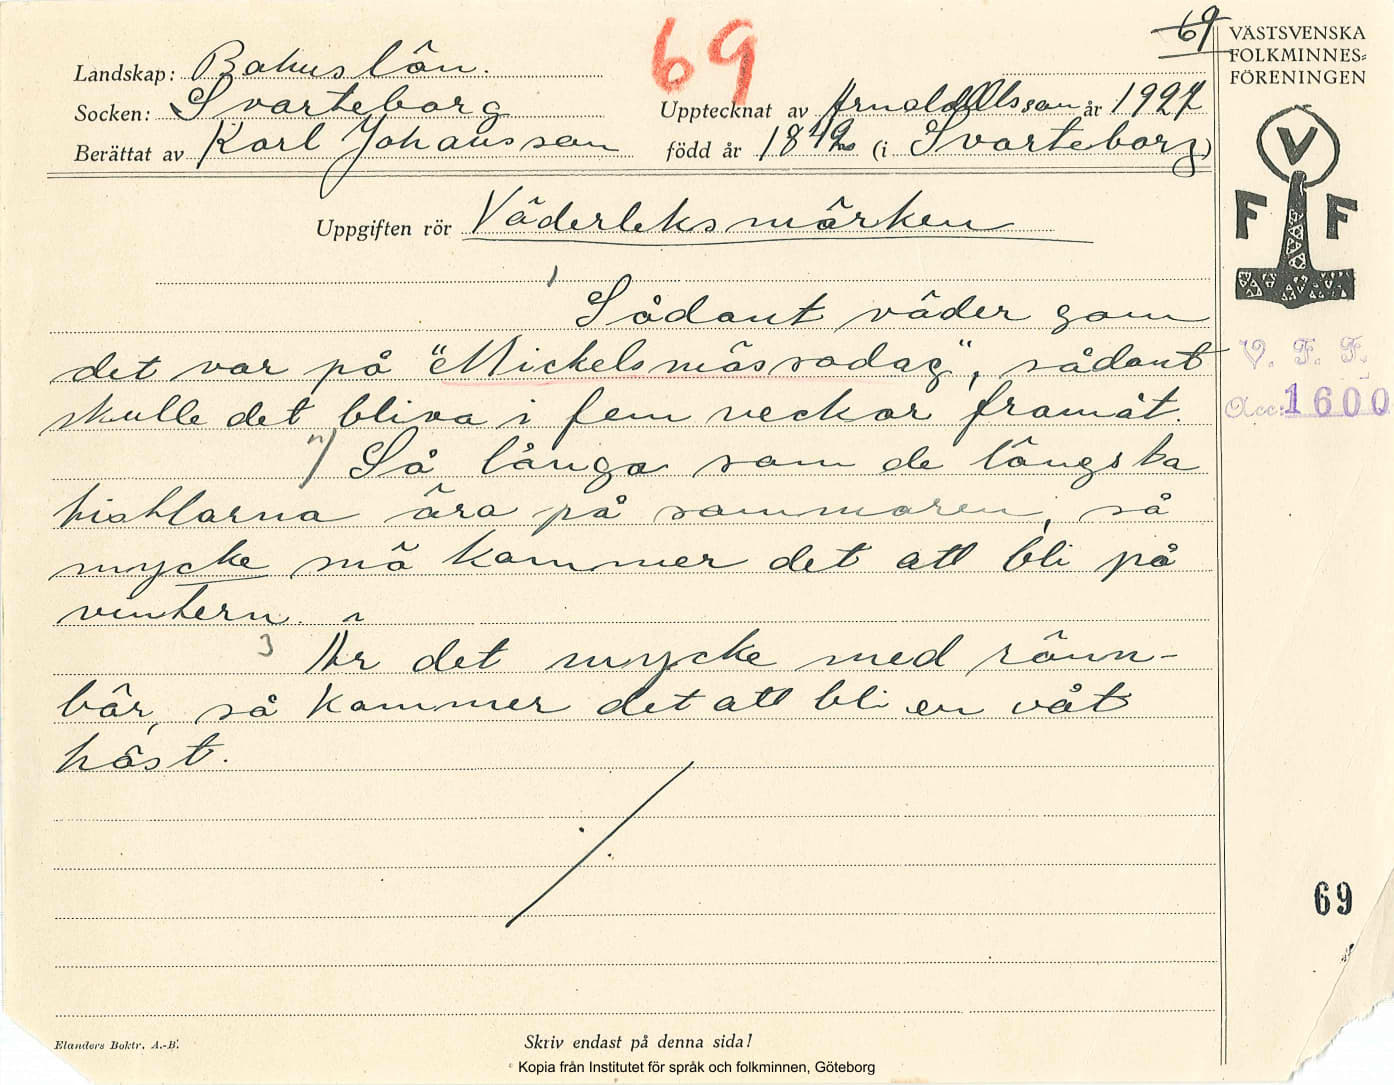 69
69
VÄSTSVENSKA
FOLKMINNES-
FÖRENINGEN
Landskap: Bohuslän.
Socken: Svarteborg
Upptecknat av Arnold Olsson år 1927
Berättat av Karl Johansson
född år 1842 (i Svarteborg)
V
F F
Uppgiften rör Väderleksmärken
1
Sådant väder som
det var på "Mickelsmässodag", sådant
skulle det bliva i fem veckor framåt.
2) Så långa som de längsta
pishlarna ära på sommaren, så
mycke snö kommer det att bli på
vintern.
3 Är det mycke med rönn-
bär, så kommer det att bli en våt
höst.
V. F. F.
Acc: 1600
69
Elanders Boktr. A.-B.
Skriv endast på denna sida!
Kopia från Institutet för språk och folkminnen, Göteborg